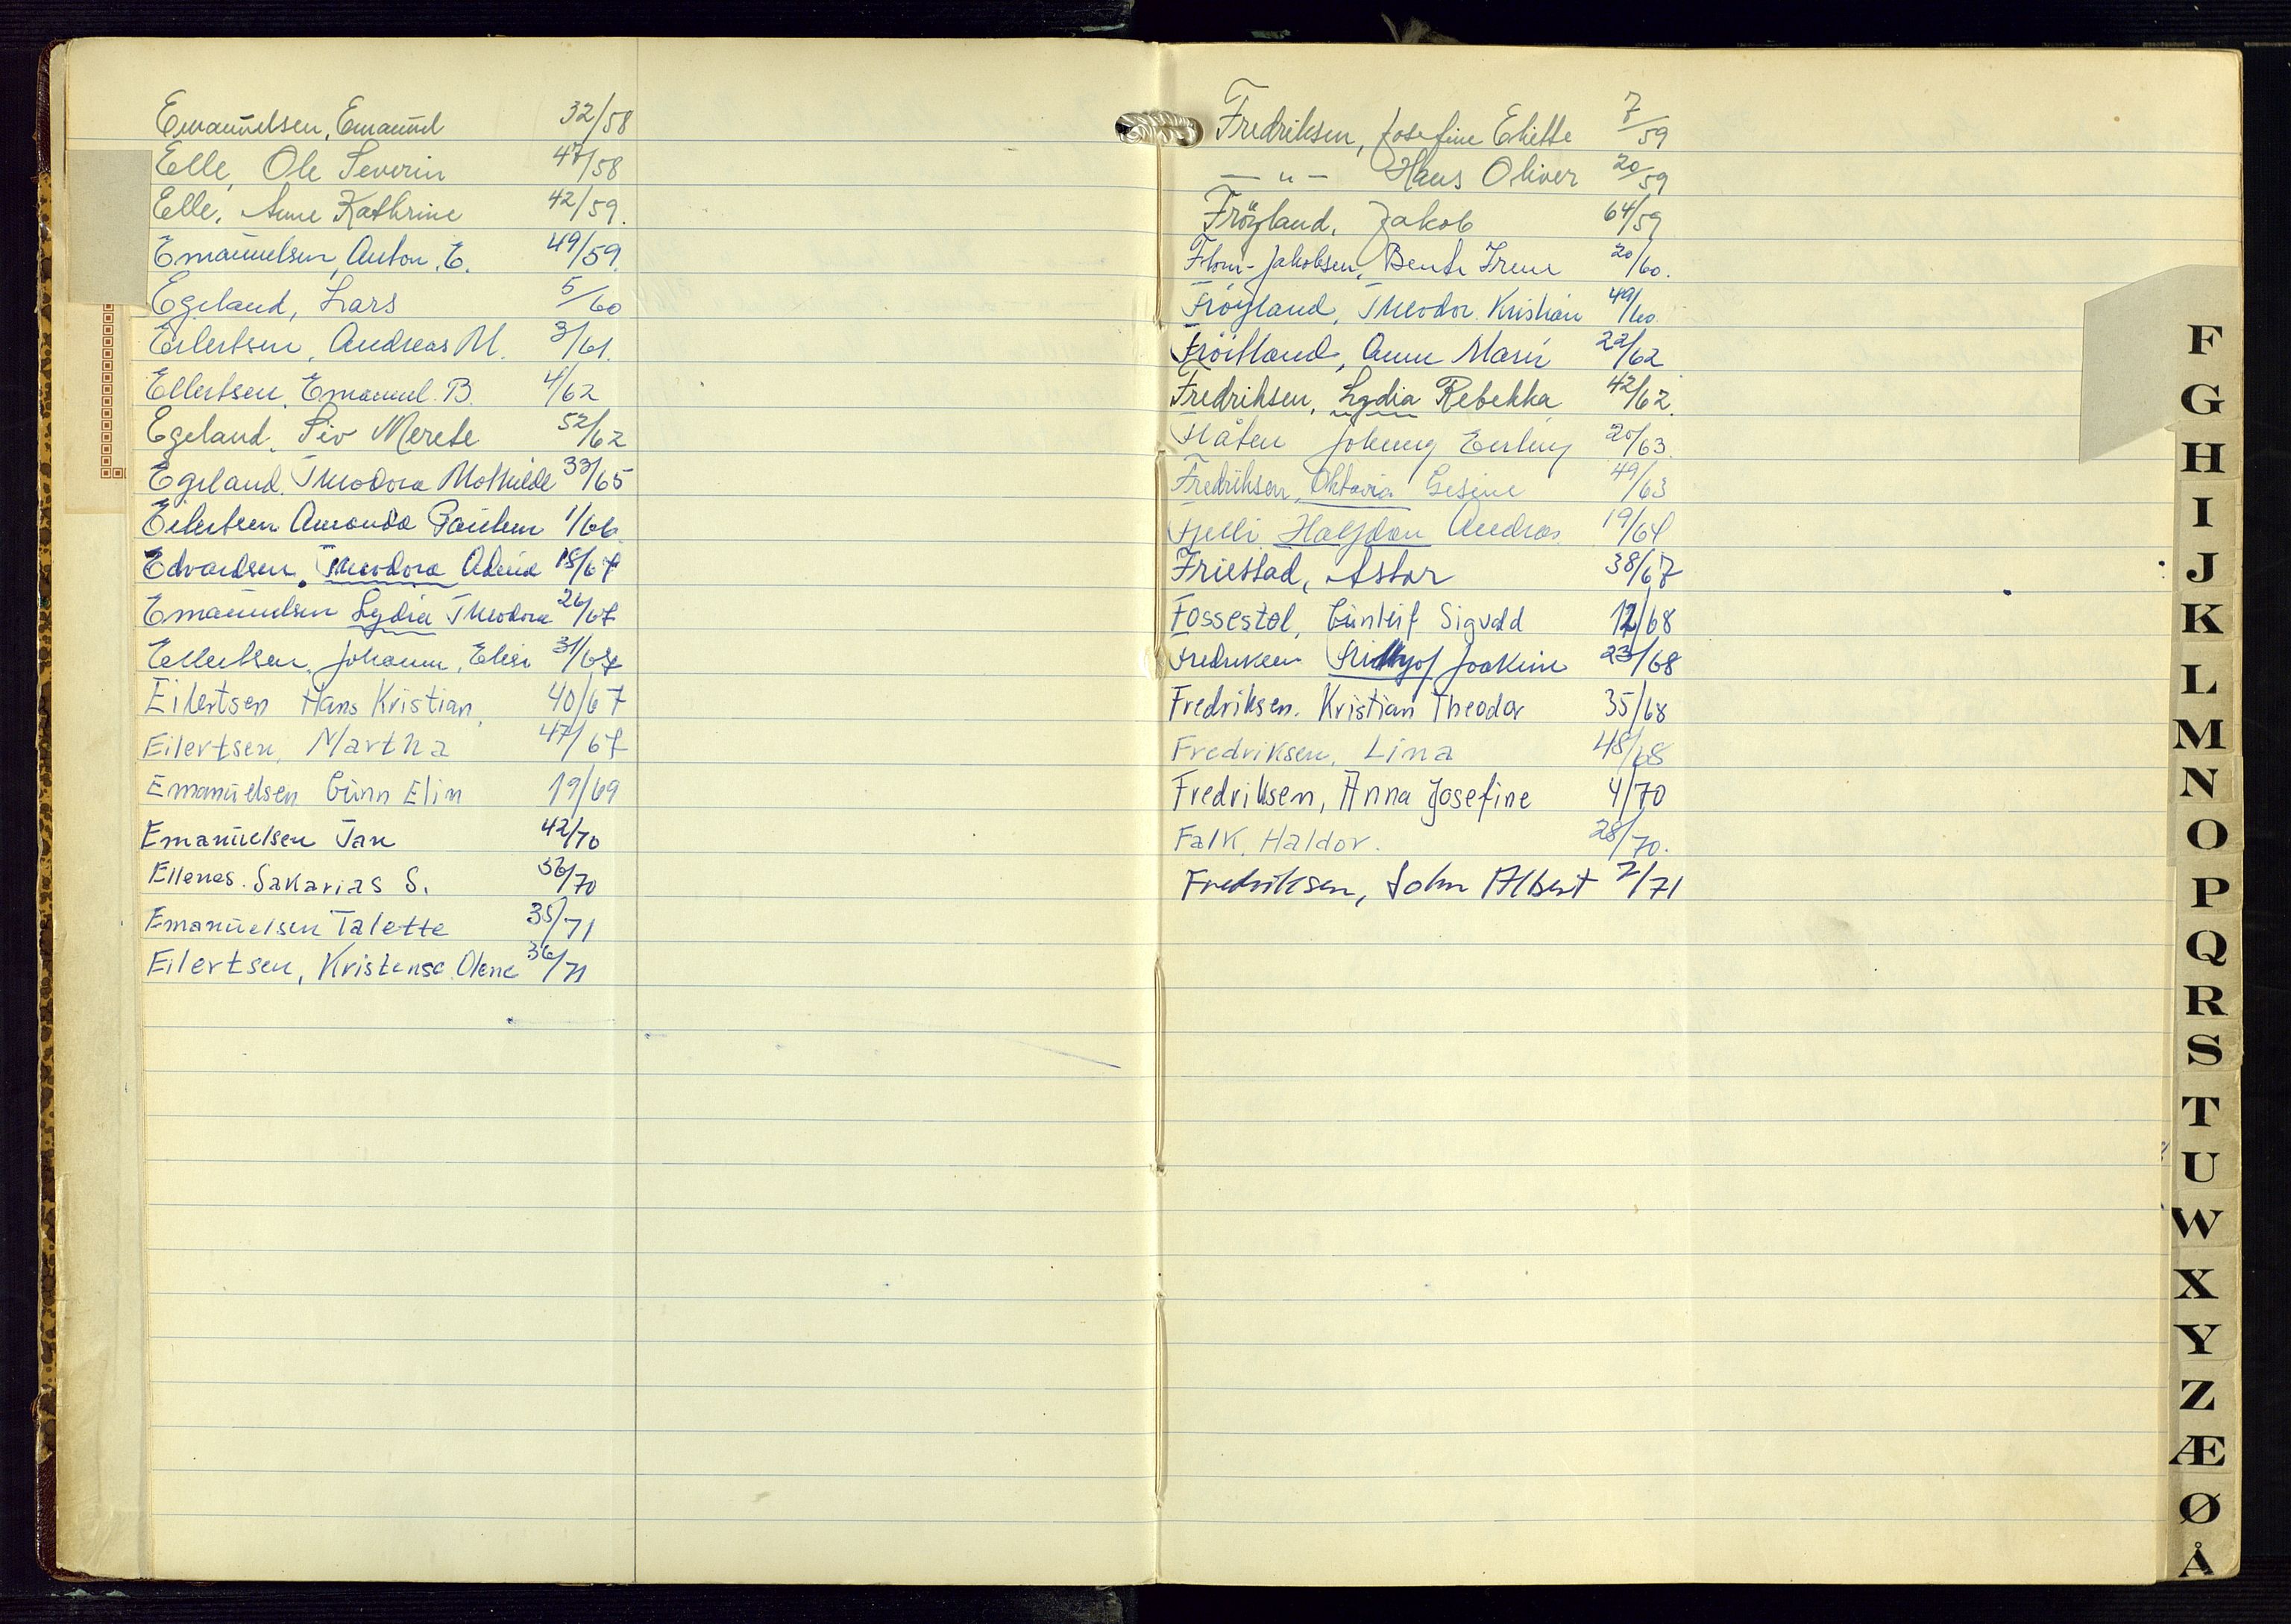 Emanuelsen, Emanuel 32/58
Elle, Ole Severin 47/58
Elle, Anne Kathrine 42/59.
Emanuelsen, Anton. E. 49/59.
Egeland, Lars 5/60
Eilertsen, Andreas M. 3/61.
Ellertsen, Emanuel. B. 4/62
Egeland, Siv Merete 52/62
Egeland, Theodora Mathilde 33/65
Eilertsen Amanda 1/66.
Edvardsen, Theodora 18/67
Emanuelsen Lydia Theodora 26/67
Ellertsen, Johanne, 31/67
Eilertsen Hans Kristian 40/67
Eilertsen, Martha 47/67
Emanuelsen Gunn Elin 19/69
Emanuelsen Jan 42/70
Ellenes. Sakarias S. 56/70
Emanuelsen Talette 35/71
Eilertsen, Kristense Olene 36/71
Fredriksen, Josefine 7/59
— " — Hans Oliver 20/59
Fröyland, Jakob 64/59
Flom-Jakobsen, Bente Irene 20/60.
Fröyland, Theodor Kristian 49/60.
Fröitland, Anne Marie 22/62
Fredriksen, Lydia Rebekka 42/62.
Flåten Johnny Erling 20/63.
Fredriksen, Oktavia Gesine 49/63
Fjelli Halfdan Andreas. 19/64
Friestad, Astor 38/67
Fossestøl, Gunleif Sigvald 12/68
Fredriksen Fridthjof Joakim 23/68
Fredriksen. Kristian Theodor 35/68
Fredriksen, Lina 48/68
Fredriksen, Anna Josefine 4/70
Falk, Haldor. 28/70.
Fredriksen, John Albert 7/71
F
G
H
I
J
K
L
M
N
O
P
Q
R
S
T
U
W
X
Y
Z
Æ
Ø
Å